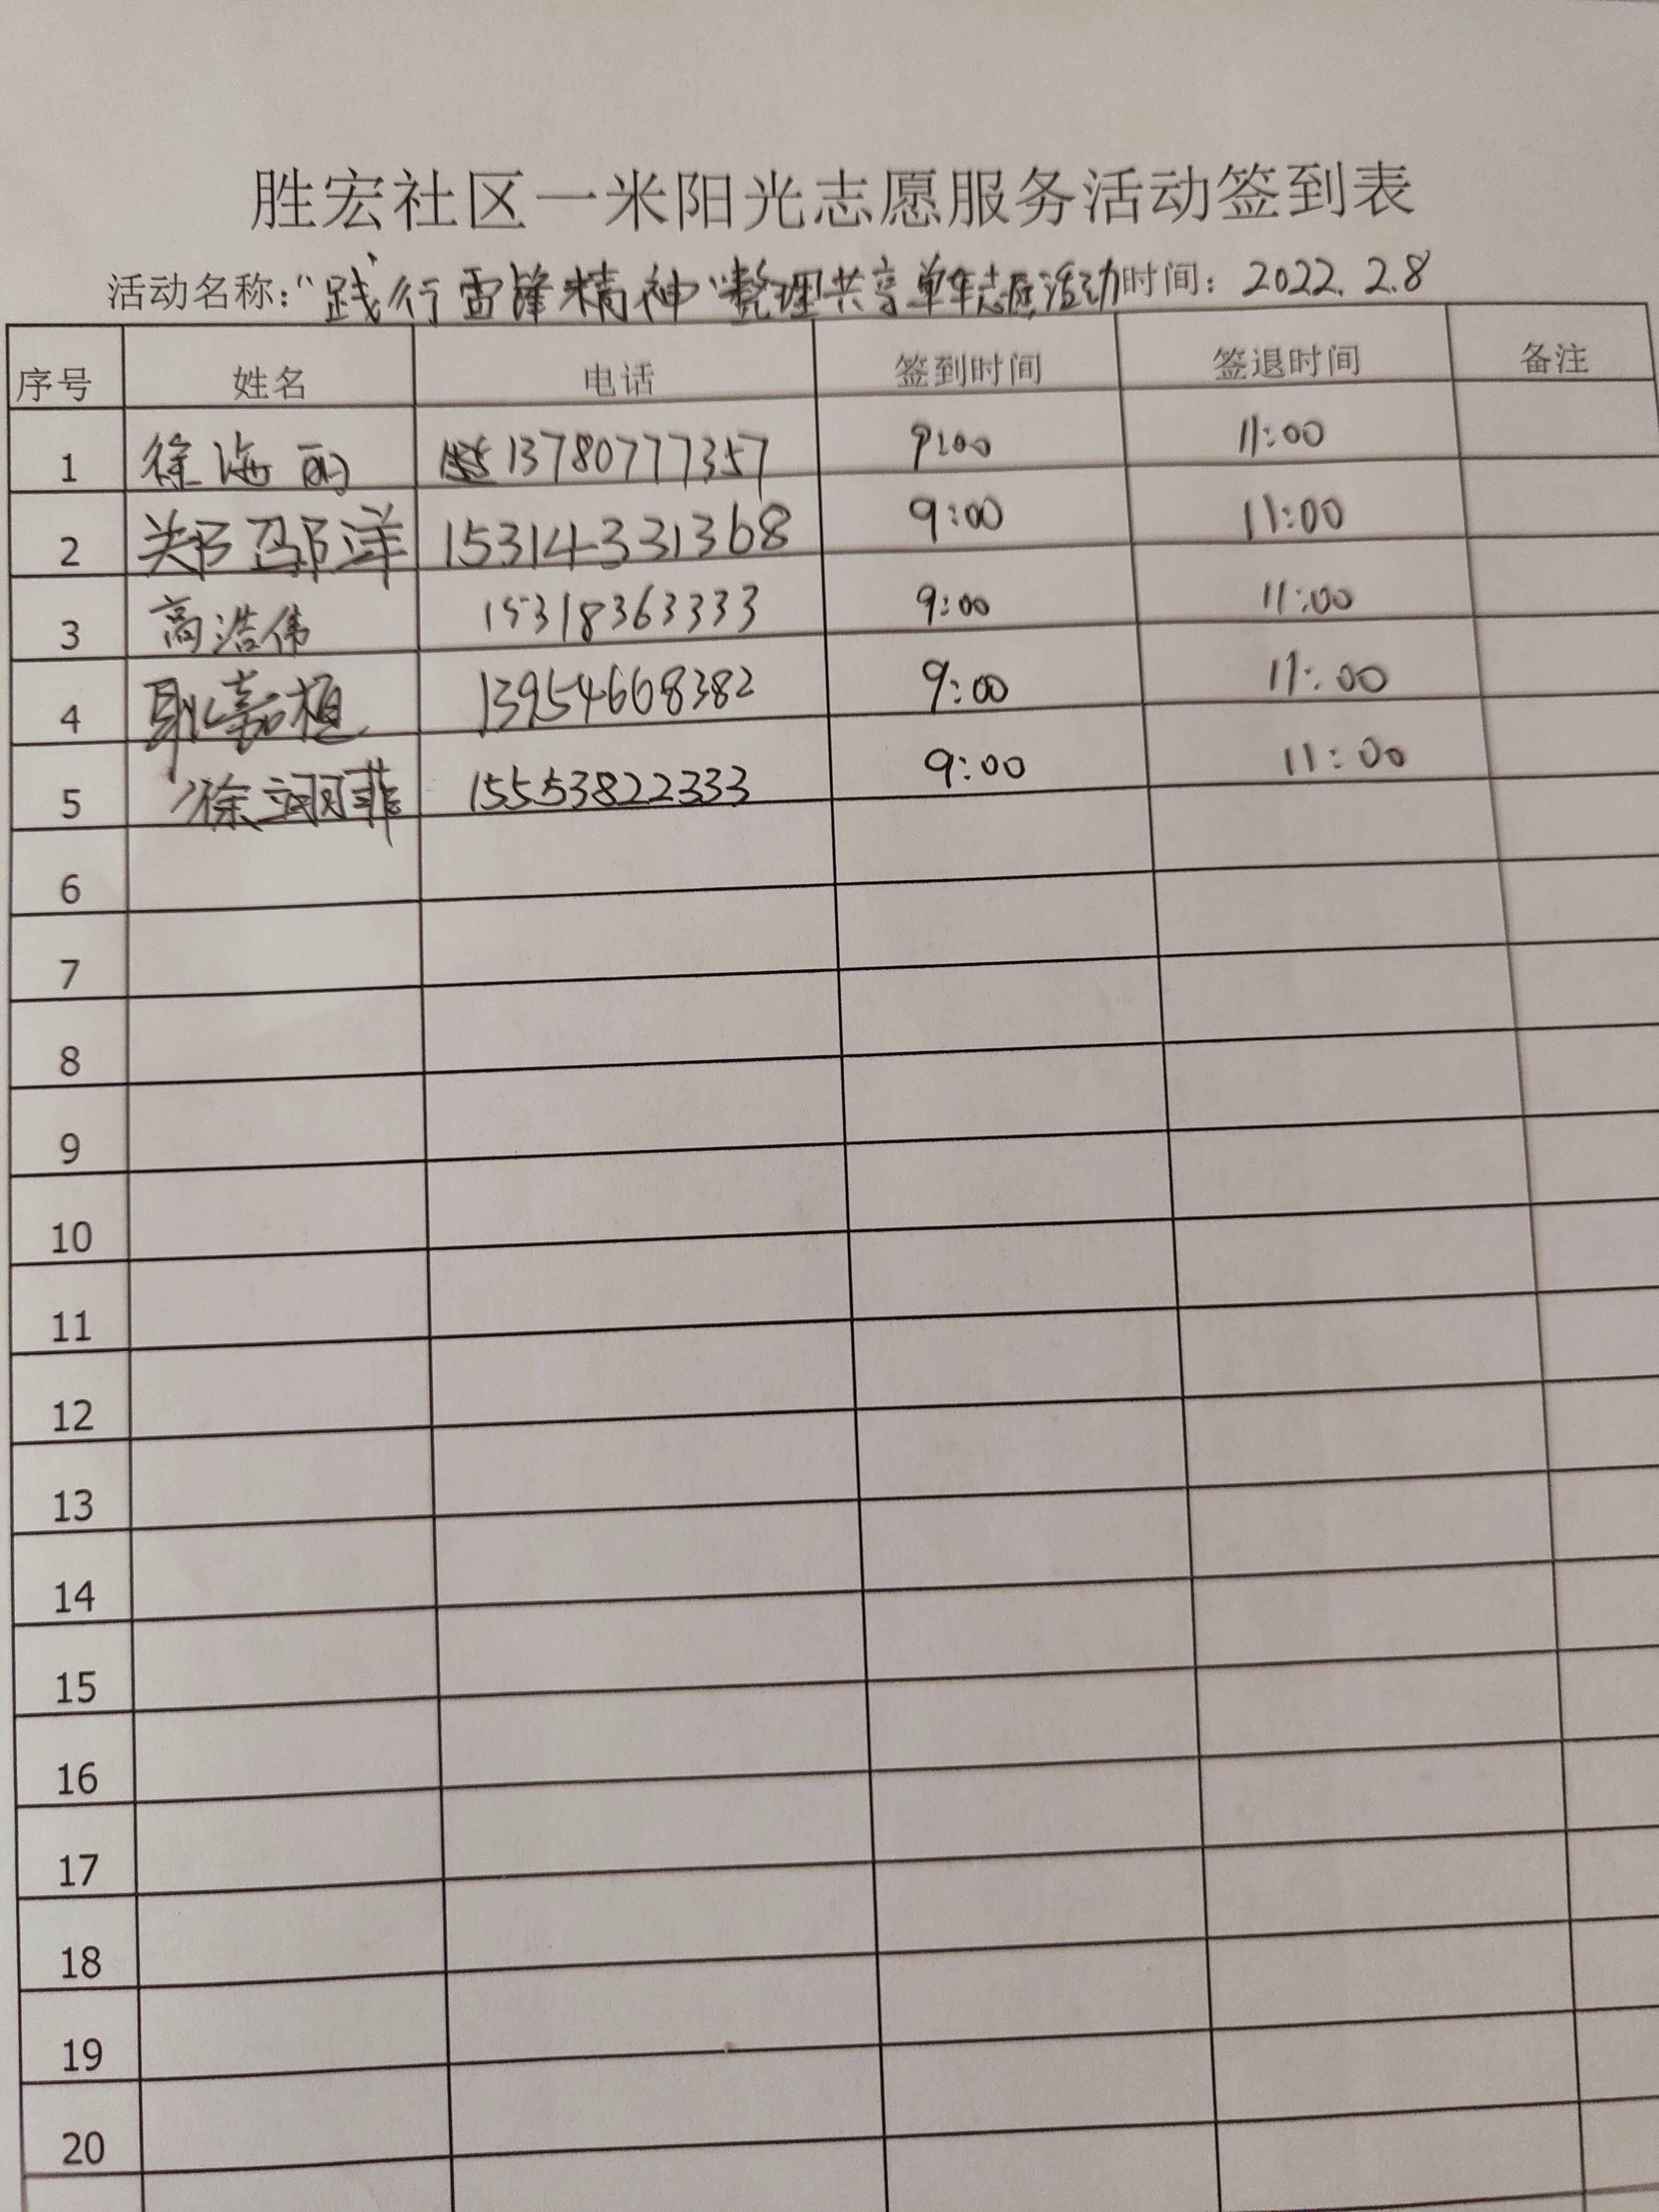 胜宏社区一米阳光志愿服务活动签到表
活动名称：“践行雷锋精神”整理共享单车志愿活动 时间：2022.2.8
序号 姓名 电话 签到时间 签退时间 备注
1 徐海丽 13780777357 9:00 11:00
2 郑邵洋 15314331368 9:00 11:00
3 高浩伟 15318363333 9:00 11:00
4 耿嘉桓 13954668382 9:00 11:00
5 徐翊菲 15553822333 9:00 11:00
6
7
8
9
10
11
12
13
14
15
16
17
18
19
20